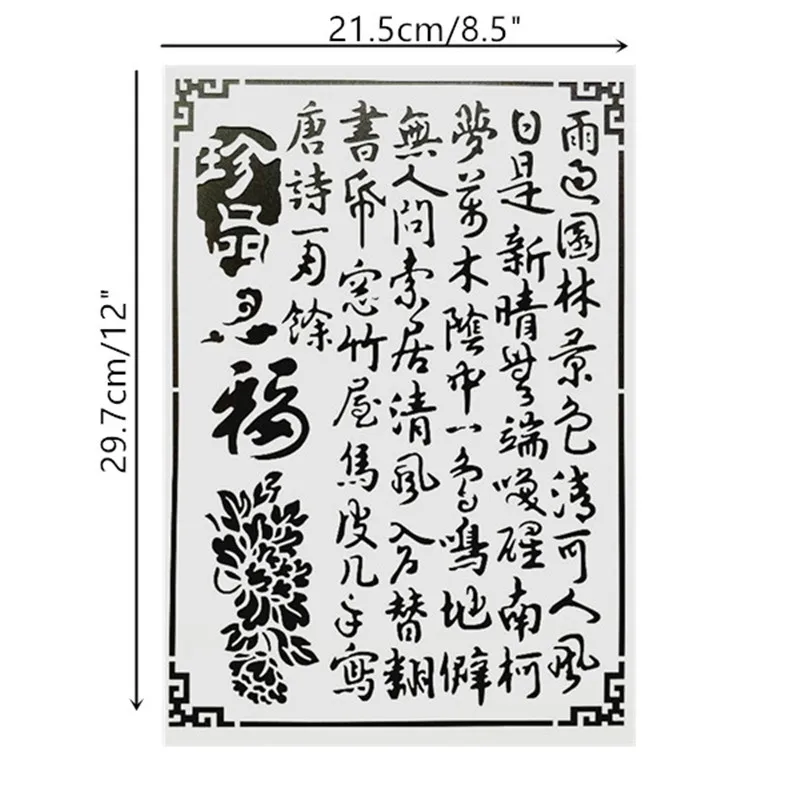 21.5cm/8.5"
29.7cm/12"
雨過園林景色清可人風
日是新晴無端喚醒南柯
夢萬木陰中一鳥鳴地僻
無人問索居清風入戶替翻
書帋窓竹屋烏皮几手寫
唐詩一月餘
珍品
福